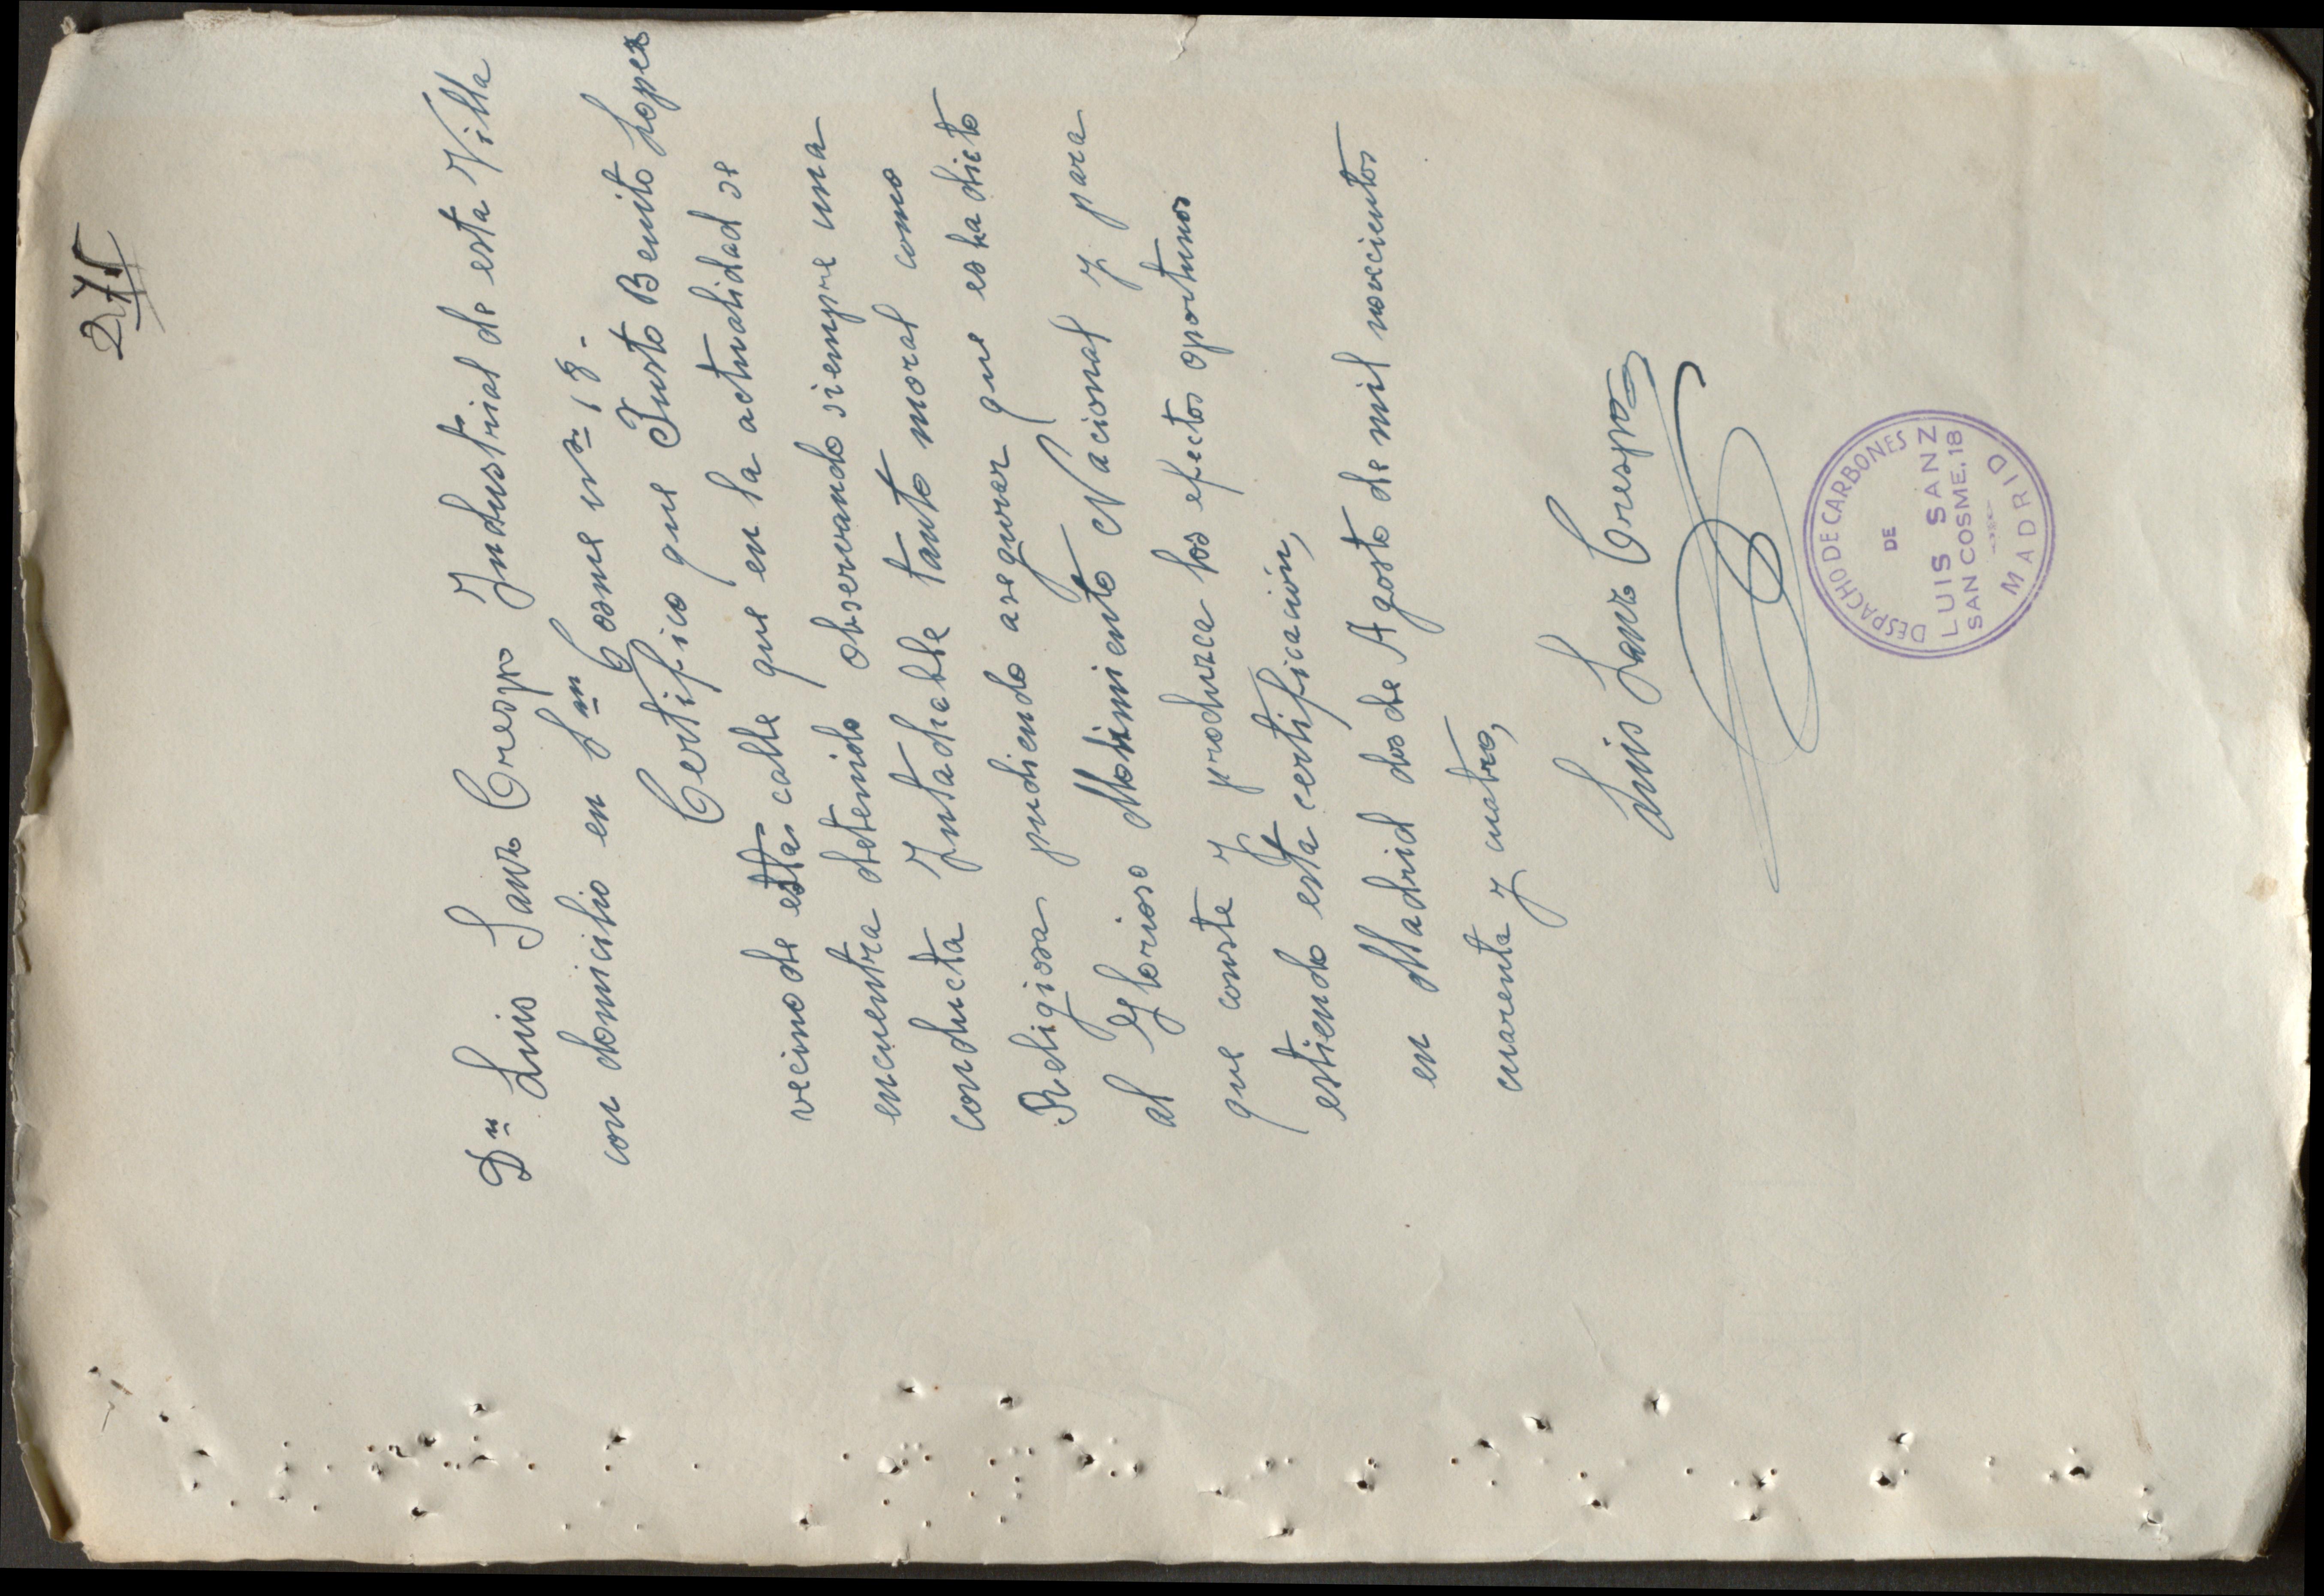 275
Dn Luis Sanz Crespo Industrial de esta Villa
con domicilio en Sn Cosme nº 18.
Certifico que Justo Benito Lopez
vecino de esta calle que en la actualidad se
encuentra detenido observando siempre una
conducta Intachable tanto moral como
Religiosa pudiendo asegurar que es hadicto
al Glorioso Mobimiento Nacional y para
que conste y produzca los efectos oportunos
estiendo esta certificación,
en Madrid dos de Agosto de mil novecientos
cuarenta y cuatro,
Luis Sanz Crespo
DESPACHO DE CARBONES
DE
LUIS SANZ
SAN COSME, 18
MADRID